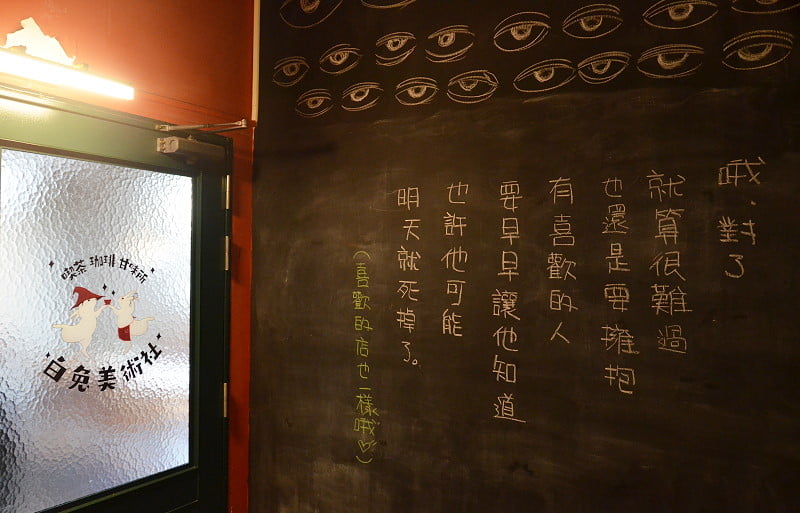 哦，對了
就算很難過
也還是要擁抱
有喜歡的人
要早早讓他知道
也許他可能
明天就死掉了。
（喜歡的店也一樣哦♡）
喫茶 珈琲 甘味所
白兔美術社